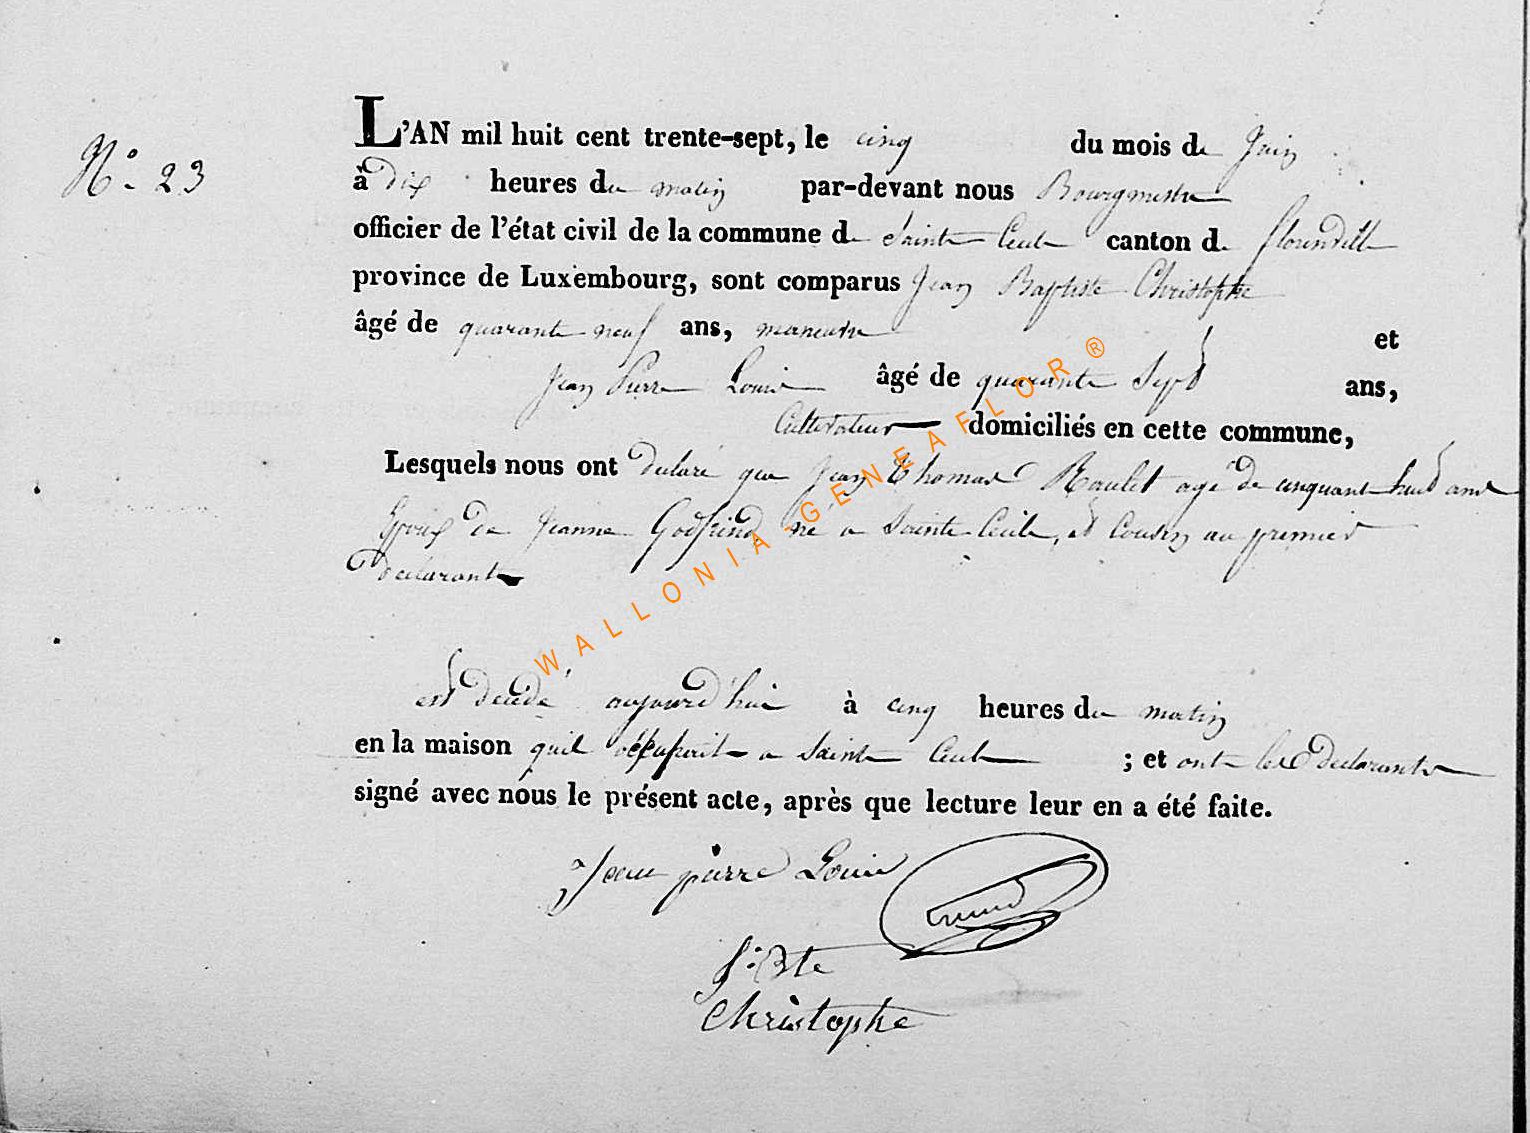 N° 23
L'AN mil huit cent trente-sept, le cinq du mois de Juin
à dix heures du matin par-devant nous Bourgmestre
officier de l'état civil de la commune de Sainte Cecile canton de florenville
province de Luxembourg, sont comparus Jean Baptiste Christophe
âgé de quarante neuf ans, manœuvre et
Jean Pierre Louis âgé de quarante Sept ans,
Cultivateur domiciliés en cette commune,
Lesquels nous ont declaré que Jean Thomas Roulet agé de cinquante huit ans
Epoux de Jeanne Godfrind, né a Sainte Cecile, et Cousin au premier
declarant
est decédé aujourd'hui à cinq heures du matin
en la maison quil occupait a Sainte Cecile ; et ont les declarants
signé avec nous le présent acte, après que lecture leur en a été faite.
Jean pierre Louis
J: Bte
Christophe
WALLONIA-GENEAFLOR ®